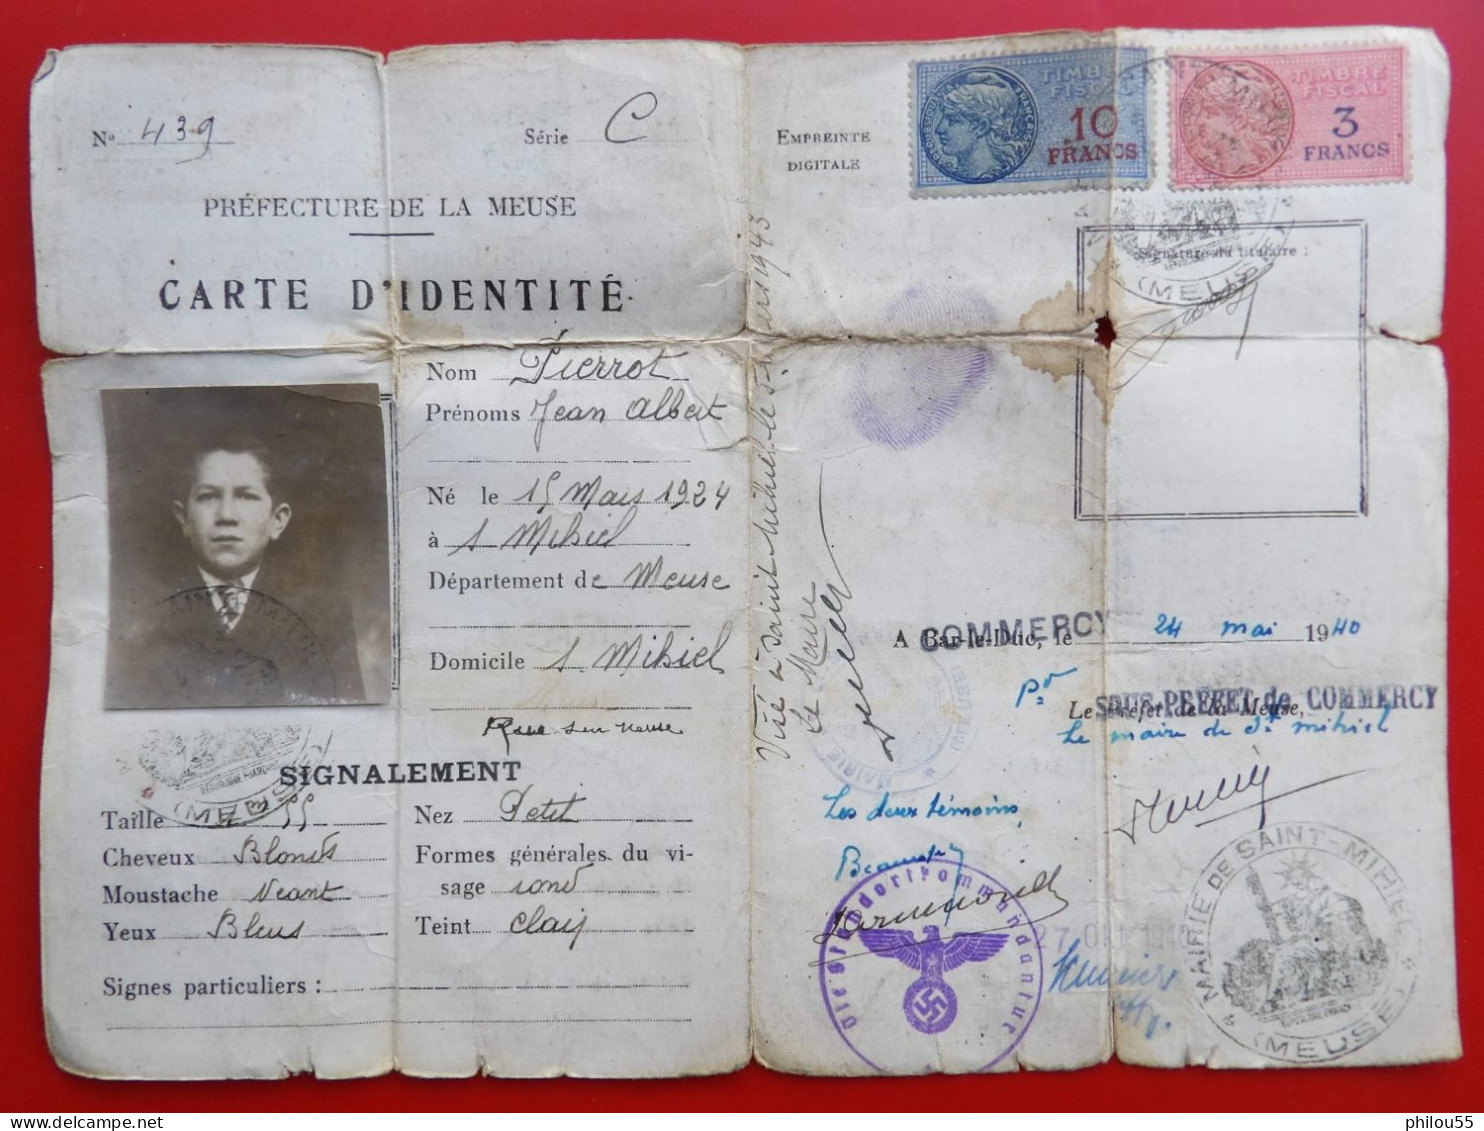 Nº 439
Série C
PRÉFECTURE DE LA MEUSE
CARTE D'IDENTITÉ
Nom Pierrot
Prénoms Jean Albert
Né le 15 Mars 1924
à S Mihiel
Département de Meuse
Domicile S Mihiel
Meuse
Rue sur Meuse
SIGNALEMENT
Taille 1 55
Cheveux Blonds
Moustache Néant
Yeux Bleus
Nez Petit
Formes générales du vi-
sage rond
Teint clair
Signes particuliers :
EMPREINTE
DIGITALE
TIMBRE
FISCAL
10
FRANCS
RÉPUBLIQUE FRANÇAISE
TIMBRE
FISCAL
3
FRANCS
Signature du titulaire :
(MEUSE)
Visé à Saint Mihiel le 5 Mars 1943
Le Maire
A Bar-le-Duc, le 24 mai 1940
COMMERCY
Pr Le Préfet de la Meuse,
SOUS-PREFET de COMMERCY
Le maire de St mihiel
Les deux témoins,
Die Standortkommandantur
27 OCT 1940
MAIRIE DE SAINT-MIHIEL
(MEUSE)
(MEUSE)
philou55